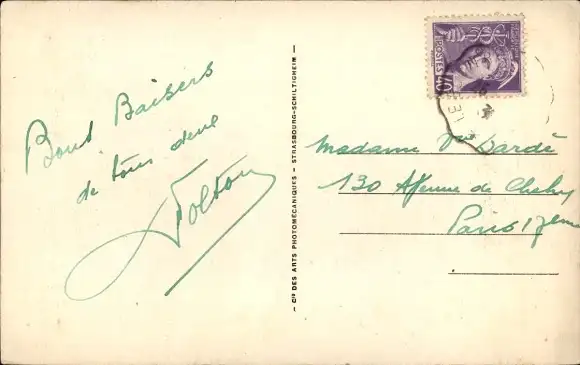 Bons Baisers
de tous deux
Dolton
— Cie DES ARTS PHOTOMECANIQUES — STRASBOURG-SCHILTIGHEIM —
POSTES 40c
Madame Vve Dardé
130 Avenue de Clichy
Paris 17eme